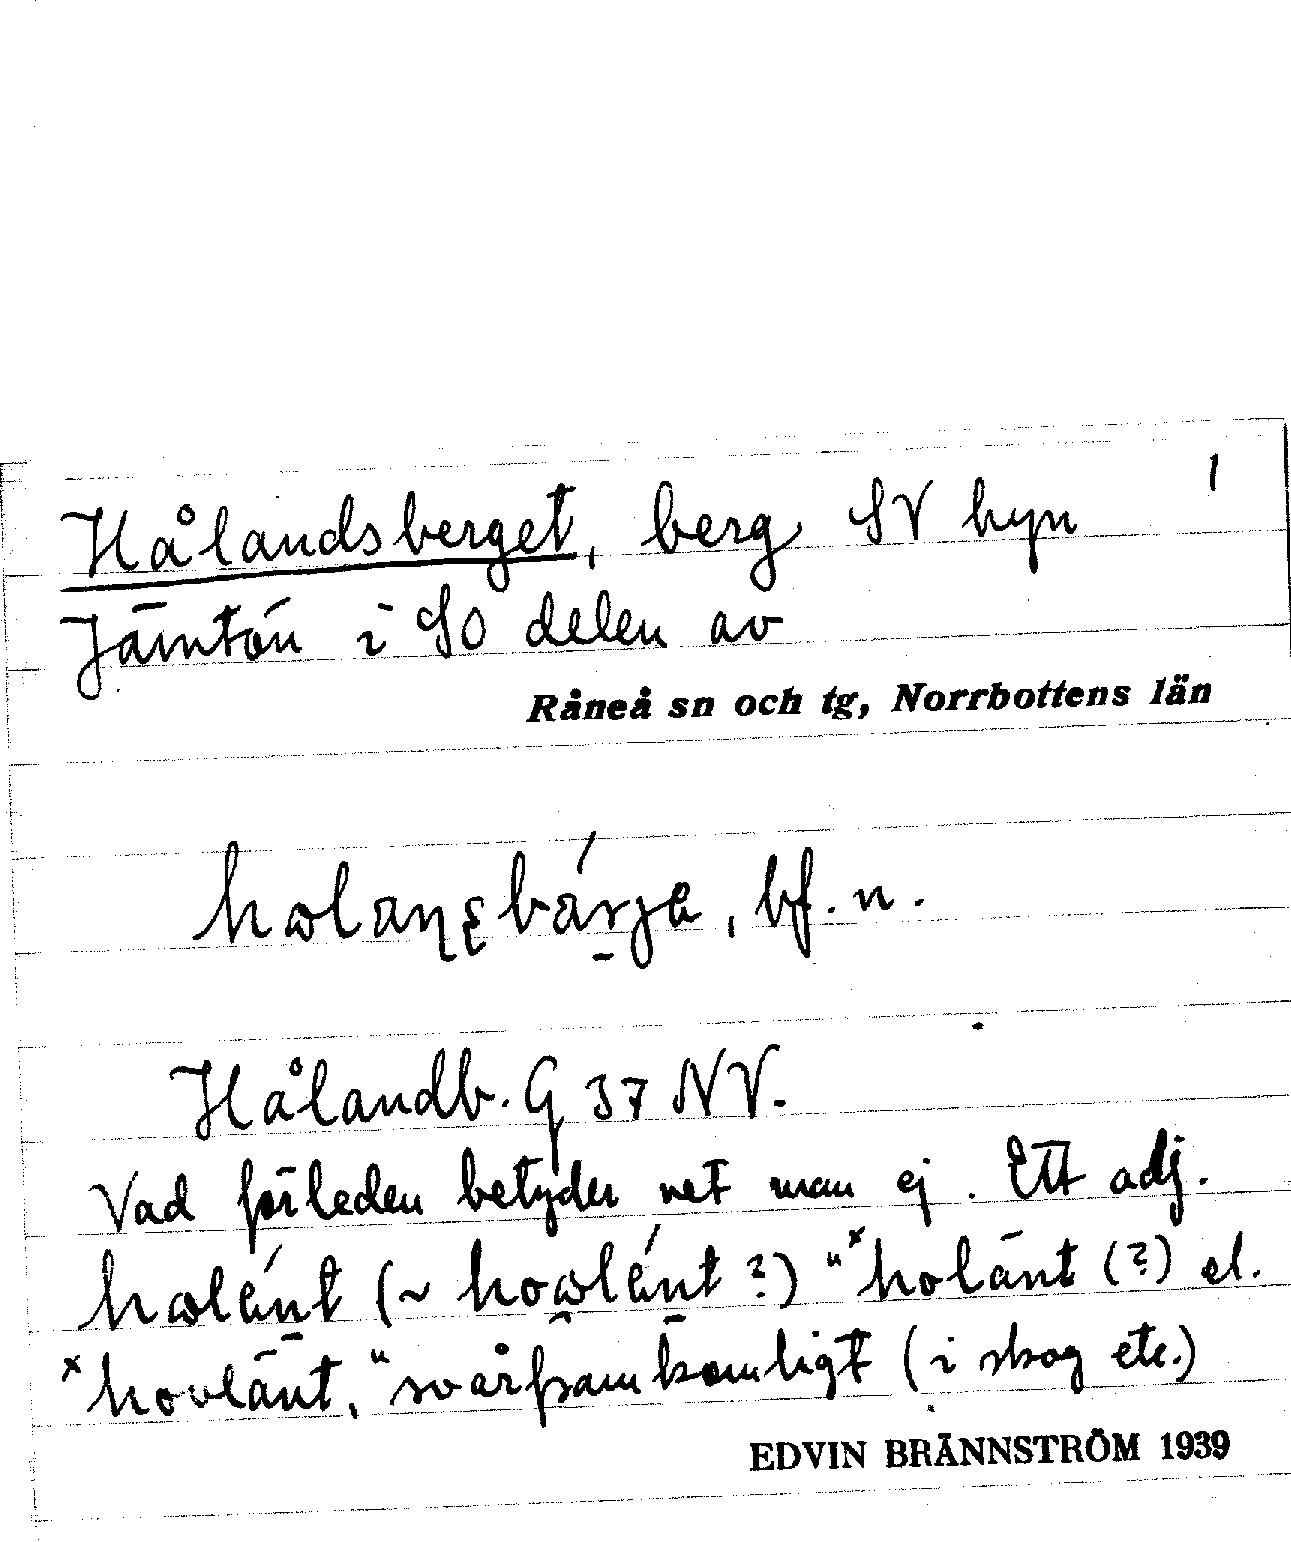 1
Hålandsberget, berg SV byn
Jämtön i SO delen av
Råneå sn och tg, Norrbottens län
hωlaɳʂbárja, bf. n.
Hålandb. G 37 NV.
Vad förleden betyder vet man ej. Ett adj.
hωlént (~ hoωlént ?) "ˣholänt (?) el.
ˣhovlänt," svårframkomligt (i skog etc.)
EDVIN BRÄNNSTRÖM 1939